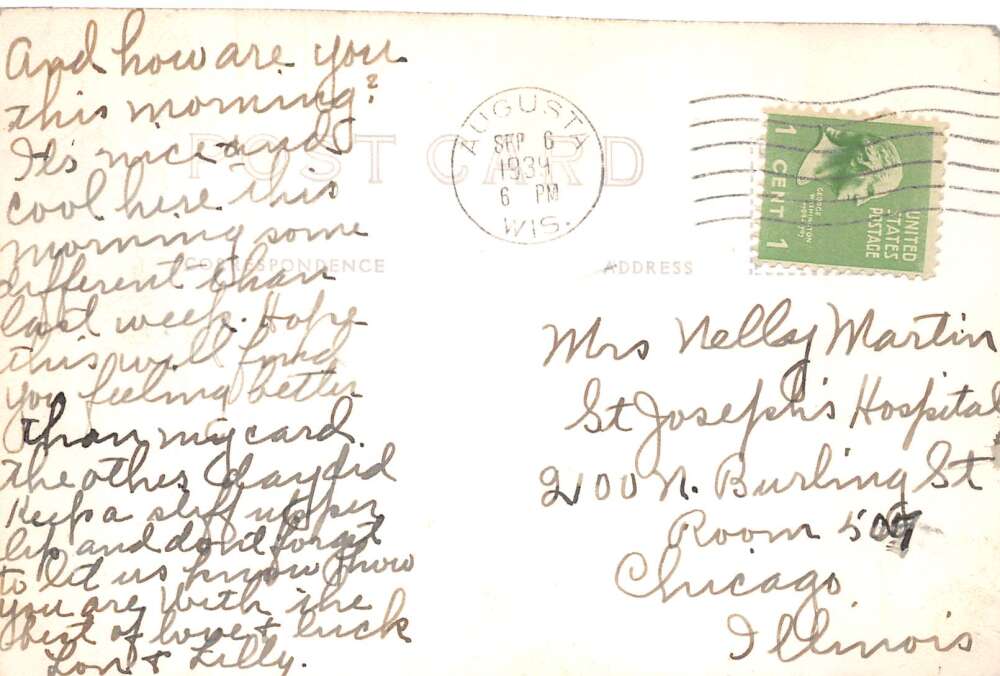 And how are you
this morning?
It's nice and
cool here this
morning some
different than
last week. Hope
this will find
you feeling better
than my card
the other day did
Keep a stiff upper
lip and dont forget
to let us know how
you are with the
best of love & luck
Lon & Lilly.
POST CARD
CORRESPONDENCE
ADDRESS
AUGUSTA
SEP 6
6 PM
WIS.
1 CENT 1
GEORGE
WASHINGTON
UNITED
STATES
POSTAGE
Mrs Nelly Martin
St Joseph's Hospital
2100 N. Burling St
Room
Chicago
Illinois